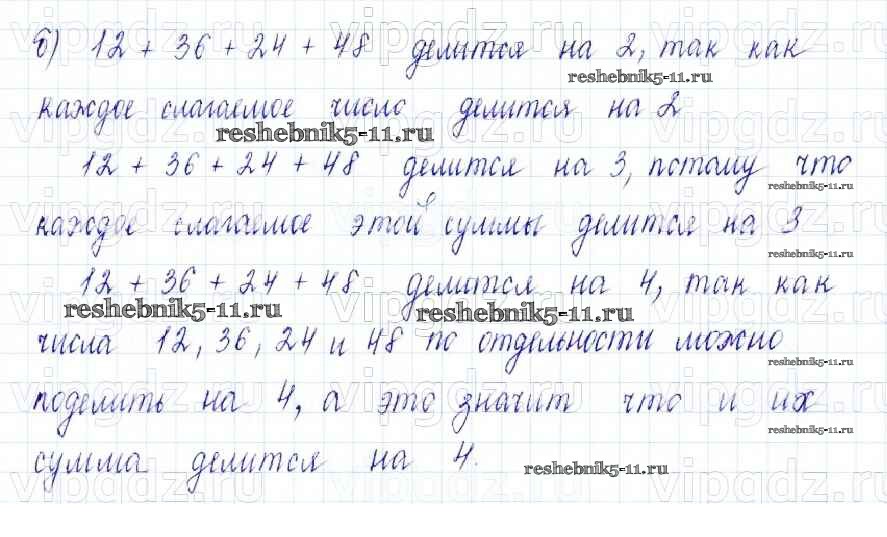 б) 12 + 36 + 24 + 48 делится на 2, так как
reshebnik5-11.ru
каждое слагаемое число делится на 2
reshebnik5-11.ru
12 + 36 + 24 + 48 делится на 3, потому что
reshebnik5-11.ru
каждое слагаемое этой суммы делится на 3
reshebnik5-11.ru
12 + 36 + 24 + 48 делится на 4, так как
reshebnik5-11.ru reshebnik5-11.ru
числа 12, 36, 24 и 48 по отдельности можно
reshebnik5-11.ru
поделить на 4, а это значит что и их
reshebnik5-11.ru
сумма делится на 4.
reshebnik5-11.ru
vipgdz.ru